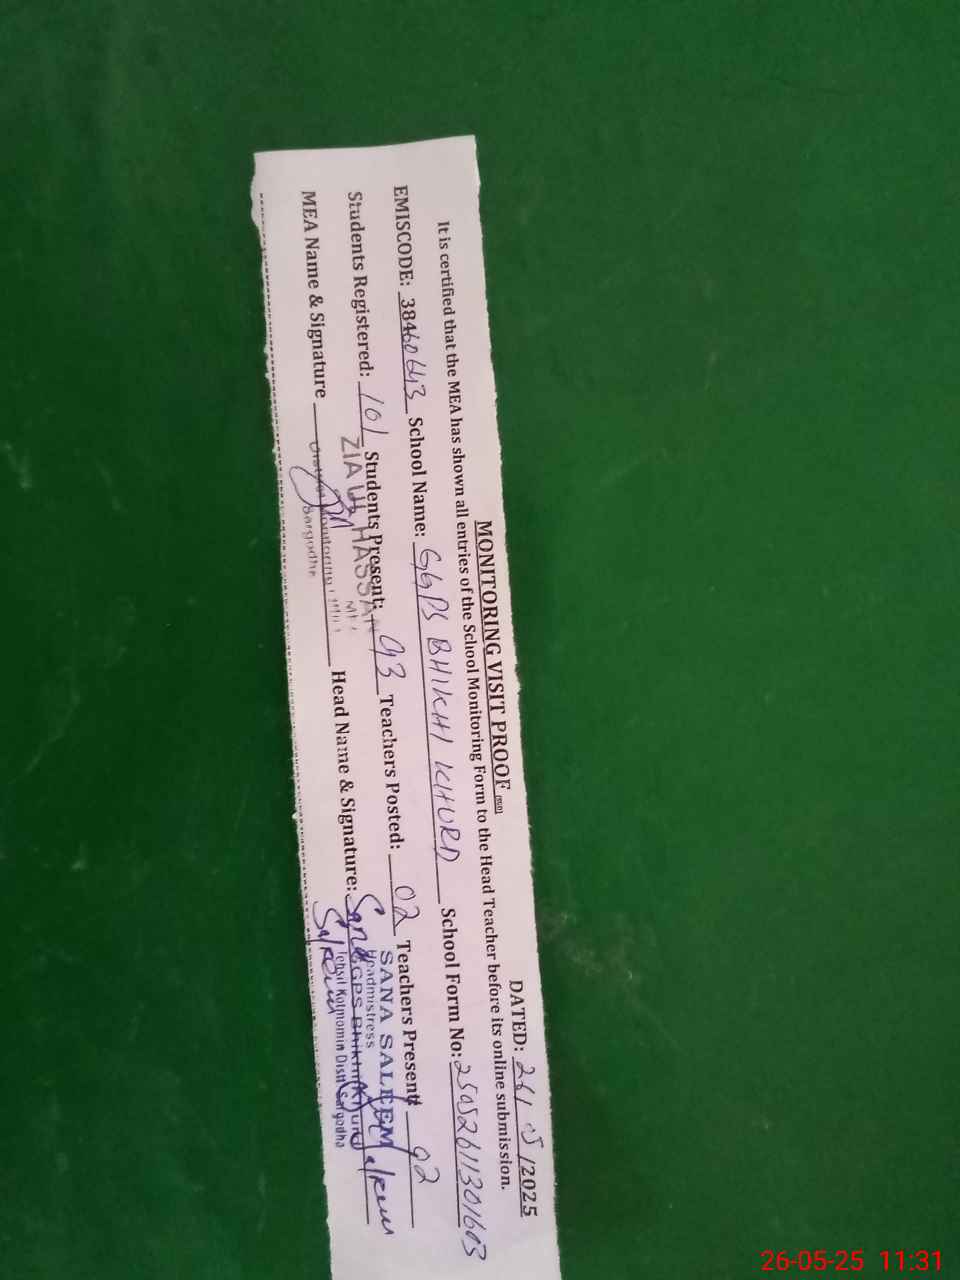 MONITORING VISIT PROOF
DATED: 26/05/2025
It is certified that the MEA has shown all entries of the School Monitoring Form to the Head Teacher before its online submission.
EMISCODE: 38460643 School Name: GGPS BHIKHI KHURD School Form No: 25052611301603
Students Registered: 101 Students Present: 93 Teachers Posted: 02 Teachers Present: 02
ZIA UL HASSAN
MEA
SANA SALEEM
Headmistress
MEA Name & Signature Head Name & Signature: Sana Saleem
District Monitoring
Sargodha
GGPS Bhikhi Khurd
Tehsil Kotmomin Distt Sargodha
26-05-25 11:31